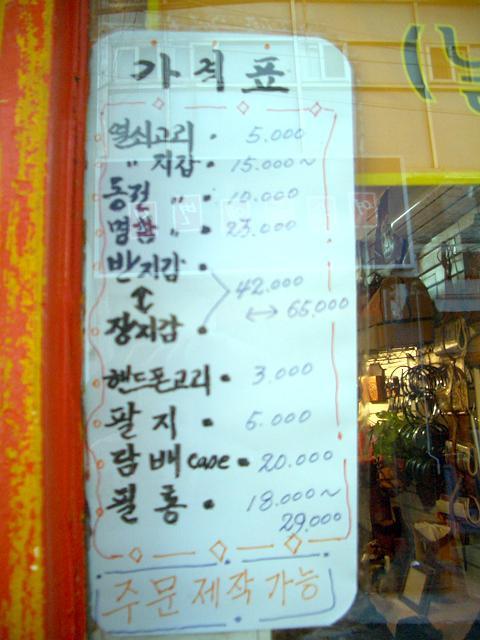 가격표
열쇠고리 • 5.000
" 지갑 • 15.000~
동전 " • 10.000
명함 " • 23.000
반지갑 •
↕ 42.000
↔ 65,000
장지갑 •
핸드폰고리 • 3.000
팔지 • 6.000
담배case • 20.000
필통 • 18.000~
29.000
주문제작가능